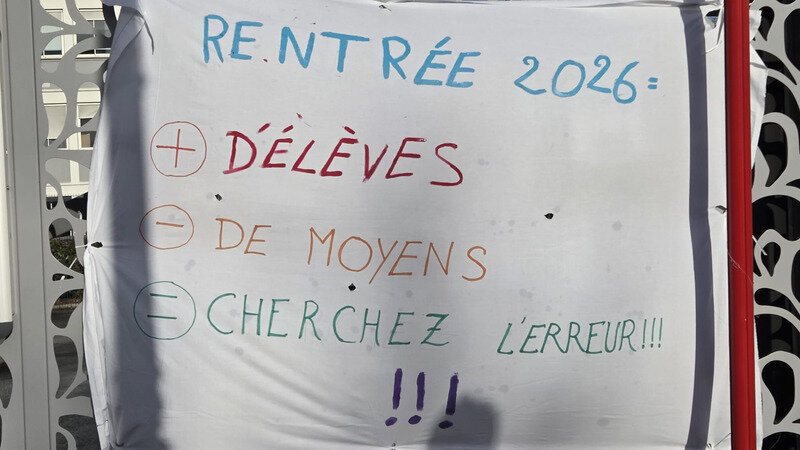 RENTRÉE 2026 =
+ D'ÉLÈVES
- DE MOYENS
= CHERCHEZ L'ERREUR!!!
!!!